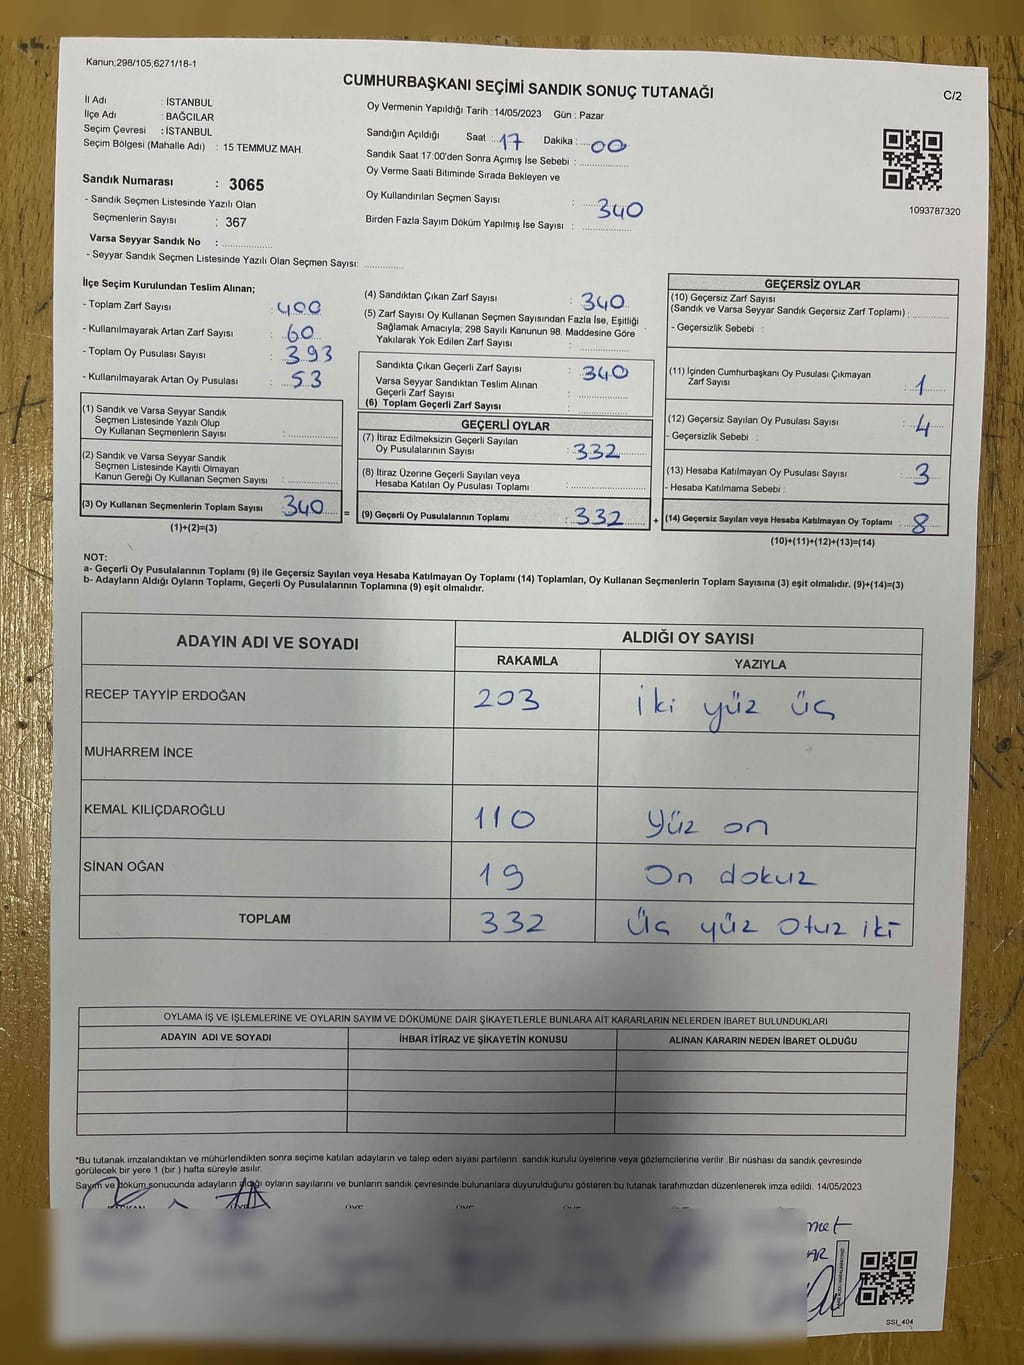 Kanun;298/105;6271/18-1
CUMHURBAŞKANI SEÇİMİ SANDIK SONUÇ TUTANAĞI
C/2
İl Adı : İSTANBUL
İlçe Adı : BAĞCILAR
Seçim Çevresi : İSTANBUL
Seçim Bölgesi (Mahalle Adı) : 15 TEMMUZ MAH.
Sandık Numarası : 3065
- Sandık Seçmen Listesinde Yazılı Olan
Seçmenlerin Sayısı : 367
Varsa Seyyar Sandık No : ................
- Seyyar Sandık Seçmen Listesinde Yazılı Olan Seçmen Sayısı: ............
Oy Vermenin Yapıldığı Tarih :14/05/2023 Gün : Pazar
Sandığın Açıldığı Saat : 17 Dakika : 00
Sandık Saat 17:00'den Sonra Açımış İse Sebebi : ................
Oy Verme Saati Bitiminde Sırada Bekleyen ve
Oy Kullandırılan Seçmen Sayısı : 340
Birden Fazla Sayım Döküm Yapılmış İse Sayısı : ................
1093787320
İlçe Seçim Kurulundan Teslim Alınan;
- Toplam Zarf Sayısı : 400
- Kullanılmayarak Artan Zarf Sayısı : 60
- Toplam Oy Pusulası Sayısı : 393
- Kullanılmayarak Artan Oy Pusulası : 53
(1) Sandık ve Varsa Seyyar Sandık
Seçmen Listesinde Yazılı Olup
Oy Kullanan Seçmenlerin Sayısı : ................
(2) Sandık ve Varsa Seyyar Sandık
Seçmen Listesinde Kayıtlı Olmayan
Kanun Gereği Oy Kullanan Seçmen Sayısı : ................
(3) Oy Kullanan Seçmenlerin Toplam Sayısı 340 =
(1)+(2)=(3)
(4) Sandıktan Çıkan Zarf Sayısı : 340
(5) Zarf Sayısı Oy Kullanan Seçmen Sayısından Fazla İse, Eşitliği
Sağlamak Amacıyla; 298 Sayılı Kanunun 98. Maddesine Göre
Yakılarak Yok Edilen Zarf Sayısı : ................
Sandıkta Çıkan Geçerli Zarf Sayısı : 340
Varsa Seyyar Sandıktan Teslim Alınan
Geçerli Zarf Sayısı : ................
(6) Toplam Geçerli Zarf Sayısı : ................
GEÇERLİ OYLAR
(7) İtiraz Edilmeksizin Geçerli Sayılan
Oy Pusulalarının Sayısı : 332
(8) İtiraz Üzerine Geçerli Sayılan veya
Hesaba Katılan Oy Pusulası Toplamı : ................
(9) Geçerli Oy Pusulalarının Toplamı : 332 +
GEÇERSİZ OYLAR
(10) Geçersiz Zarf Sayısı
(Sandık ve Varsa Seyyar Sandık Geçersiz Zarf Toplamı) : ............
- Geçersizlik Sebebi :
(11) İçinden Cumhurbaşkanı Oy Pusulası Çıkmayan
Zarf Sayısı : 1
(12) Geçersiz Sayılan Oy Pusulası Sayısı : 4
- Geçersizlik Sebebi :
(13) Hesaba Katılmayan Oy Pusulası Sayısı : 3
- Hesaba Katılmama Sebebi :
(14) Geçersiz Sayılan veya Hesaba Katılmayan Oy Toplamı : 8
(10)+(11)+(12)+(13)=(14)
NOT:
a- Geçerli Oy Pusulalarının Toplamı (9) ile Geçersiz Sayılan veya Hesaba Katılmayan Oy Toplamı (14) Toplamları, Oy Kullanan Seçmenlerin Toplam Sayısına (3) eşit olmalıdır. (9)+(14)=(3)
b- Adayların Aldığı Oyların Toplamı, Geçerli Oy Pusulalarının Toplamına (9) eşit olmalıdır.
ADAYIN ADI VE SOYADI ALDIĞI OY SAYISI
RAKAMLA YAZIYLA
RECEP TAYYİP ERDOĞAN 203 İki yüz üç
MUHARREM İNCE
KEMAL KILIÇDAROĞLU 110 Yüz on
SİNAN OĞAN 19 On dokuz
TOPLAM 332 Üç yüz Otuz iki
OYLAMA İŞ VE İŞLEMLERİNE VE OYLARIN SAYIM VE DÖKÜMÜNE DAİR ŞİKAYETLERLE BUNLARA AİT KARARLARIN NELERDEN İBARET BULUNDUKLARI
ADAYIN ADI VE SOYADI İHBAR İTİRAZ VE ŞİKAYETİN KONUSU ALINAN KARARIN NEDEN İBARET OLDUĞU
*Bu tutanak imzalandıktan ve mühürlendikten sonra seçime katılan adayların ve talep eden siyasi partilerin sandık kurulu üyelerine veya gözlemcilerine verilir .Bir nüshası da sandık çevresinde
görülecek bir yere 1 (bir ) hafta süreyle asılır.
Sayım ve döküm sonucunda adayların aldığı oyların sayılarını ve bunların sandık çevresinde bulunanlara duyurulduğunu gösteren bu tutanak tarafımızdan düzenlenerek imza edildi. 14/05/2023
SSI_404